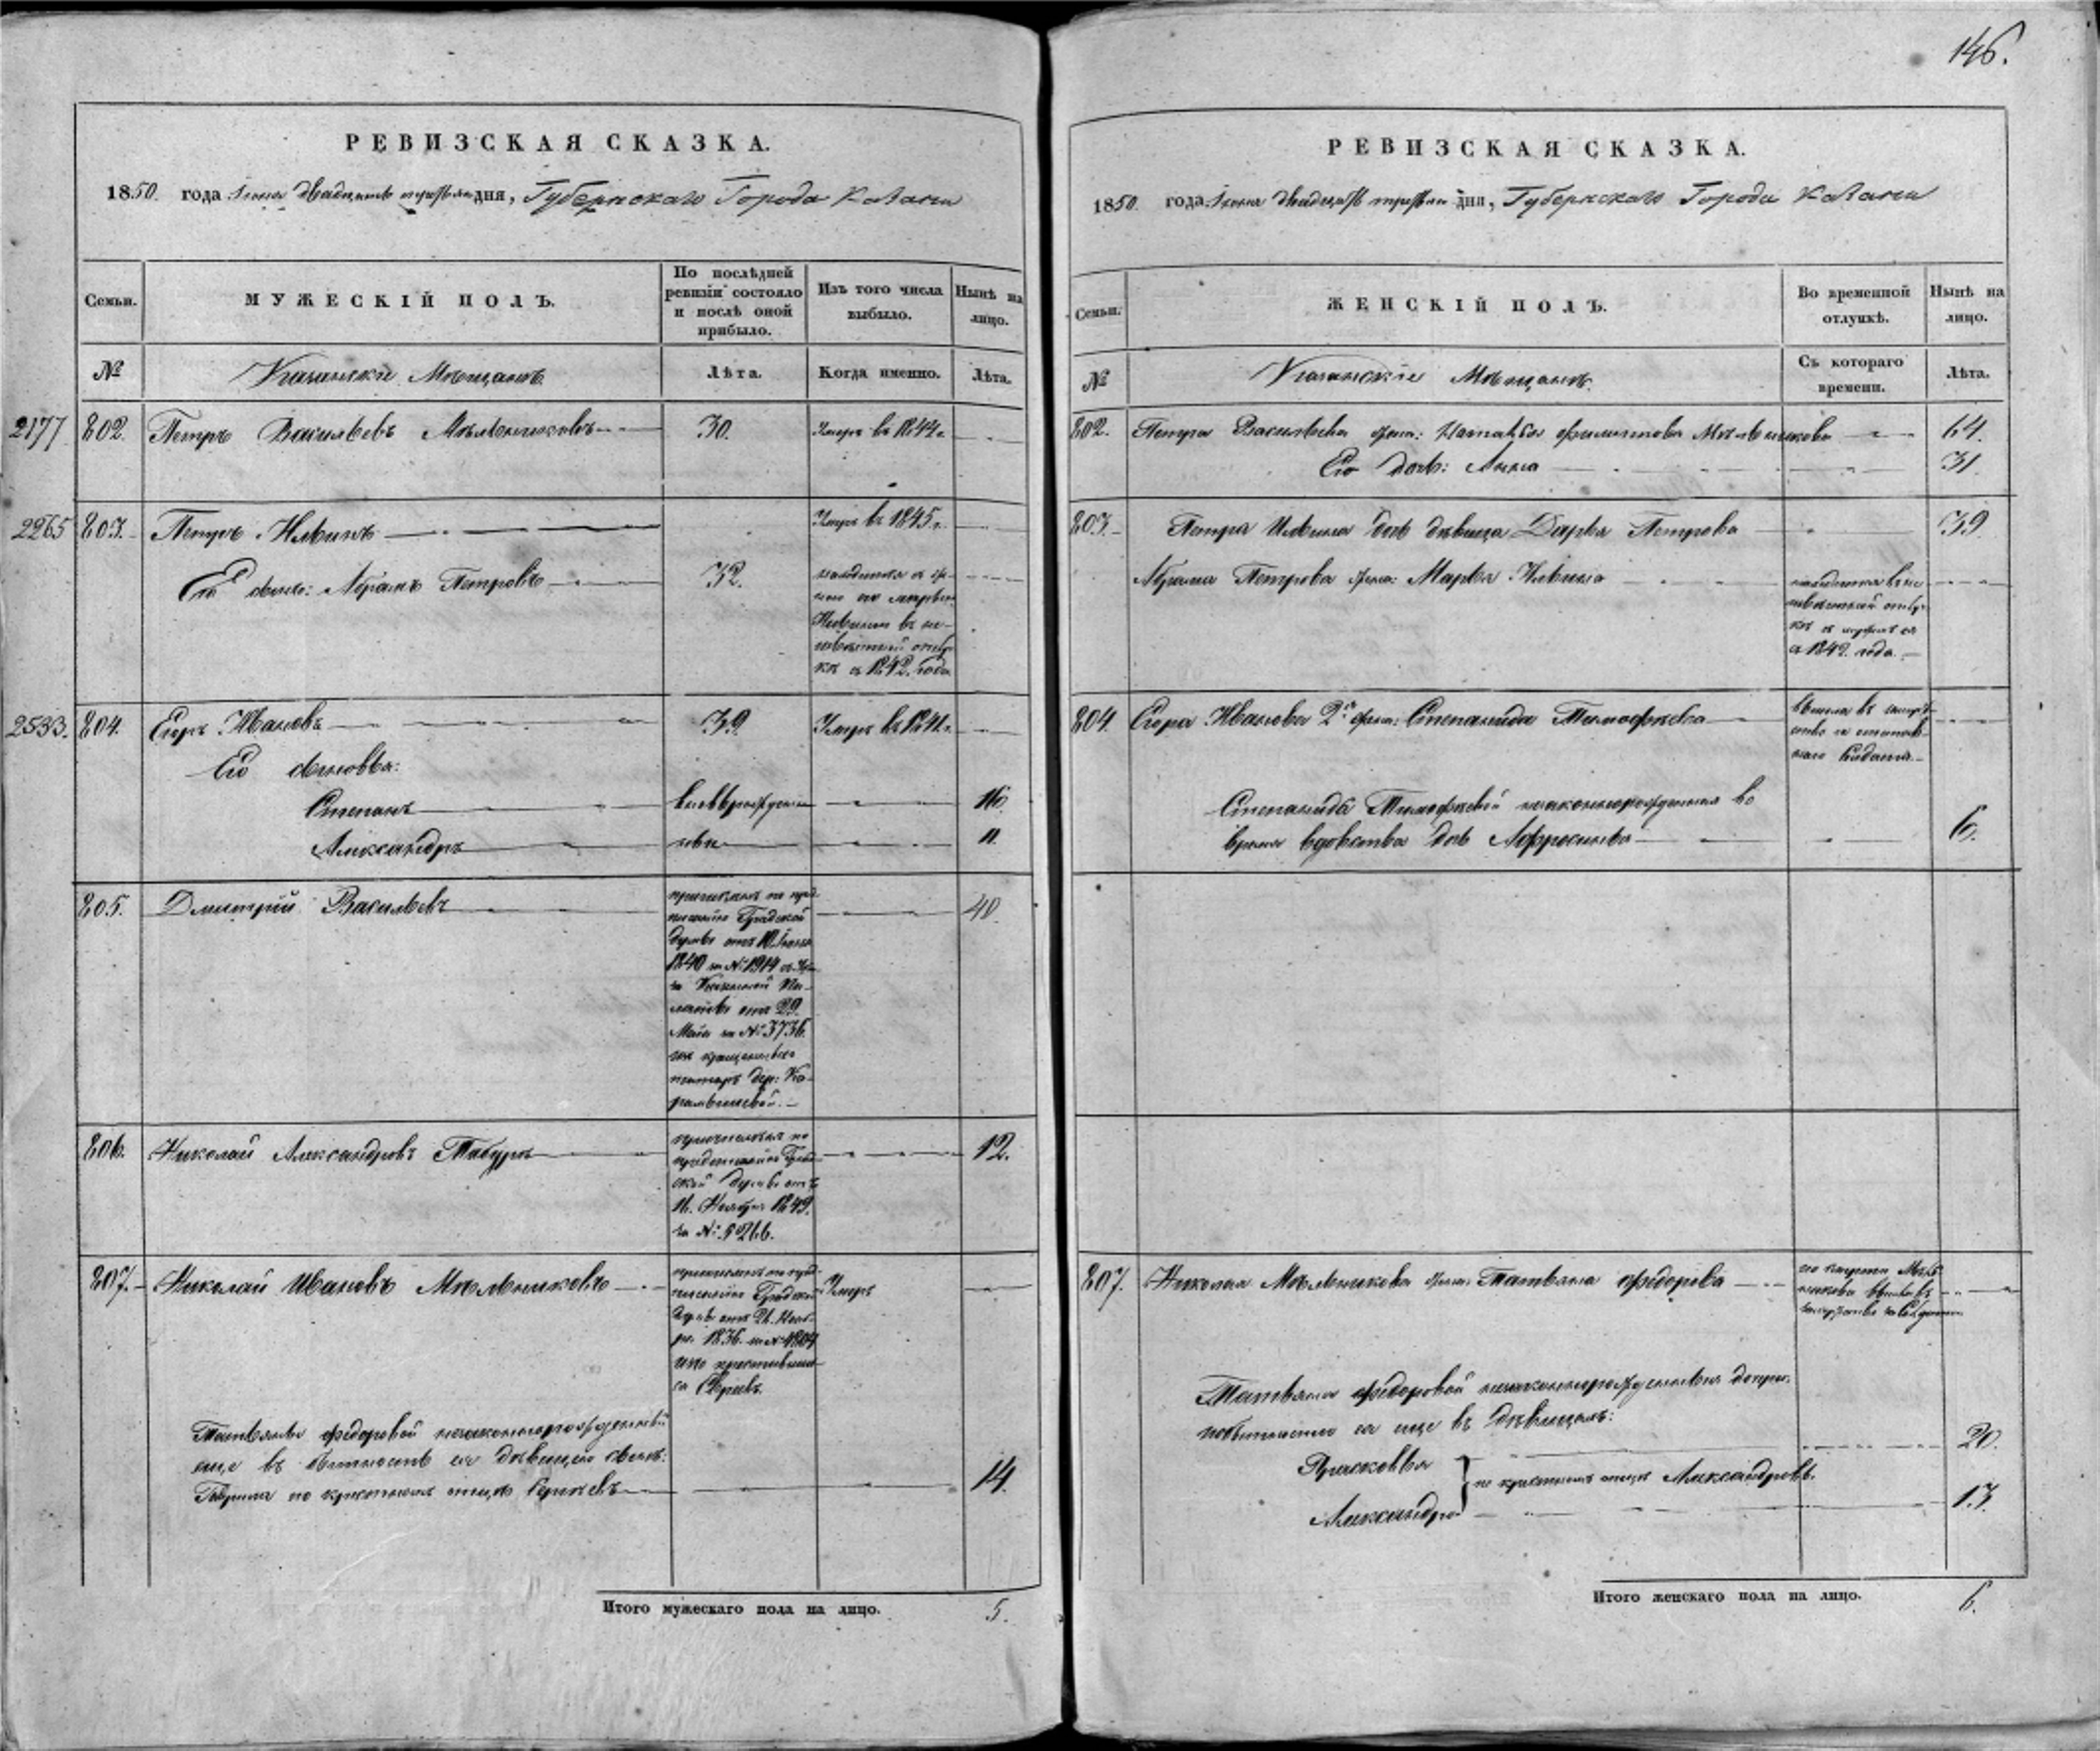 146.
РЕВИЗСКАЯ СКАЗКА.
1850. года Іюня двадцать третьяго дня, Губернскаго Города Казани
Семьи.
МУЖЕСКІЙ ПОЛЪ.
По послѣдней ревизіи состояло и послѣ оной прибыло.
Изъ того числа выбыло.
Нынѣ на лицо.
№
Казанскіе Мѣщане.
Лѣта.
Когда именно.
Лѣта.
2177
802. Петръ Васильевъ Мѣльниковъ
30.
Умеръ въ 1844 г.
2265
803. Петръ Ильинъ
Умеръ въ 1845 г.
Его сынъ: Абрамъ Петровъ
32.
находится съ женою
въ неизвѣстной отлучкѣ
съ 1842. года
2533.
804. Егоръ Ивановъ
39.
Умеръ въ 1841 г.
Его сыновья:
Степанъ
вновьрожденные
16.
Александръ
11.
805. Дмитрій Васильевъ
причисленъ по пред-
писанію Градской
думы отъ 10. Іюня
1840 за № 1914
Казенной Па-
латы отъ 29.
Мая за № 3736.
40.
806. Николай Александровъ Табуровъ
причисленъ по
предписанію Град-
ской думы отъ
16. Ноября 1849.
за № 5266.
12.
807. Николай Ивановъ Мѣльниковъ
причисленъ по пред-
писанію Градской
думы отъ 26. Нояб-
ря 1836. за №
Умеръ
Татьяны Федоровой незаконнорожденный
еще въ бытность ея дѣвицею сынъ:
Гаврила по крестномъ отцѣ Сергѣевъ
14.
Итого мужескаго пола на лицо.
5.
РЕВИЗСКАЯ СКАЗКА.
1850. года Іюня двадцать третьяго дня, Губернскаго Города Казани
Семьи.
ЖЕНСКІЙ ПОЛЪ.
Во временной отлучкѣ.
Нынѣ на лицо.
№
Казанскіе Мѣщане.
Съ котораго времени.
Лѣта.
802. Петра Васильева жена: Наталья Филипова Мѣльникова
64.
Его дочь: Анна
31.
803. Петра Ильина дочь дѣвица Дарья Петрова
39.
Абрама Петрова жена: Марья Ильина
находится въ не-
извѣстной отлуч-
кѣ съ мужемъ ея
съ 1842. года.
804. Егора Иванова 2я жена: Степанида Тимофѣева
вышла въ замуж-
ство за
солдата.
Степаниды Тимофѣевой незаконнорожденная во
время вдовства дочь Афросинья
6.
807. Николая Мѣльникова жена: Татьяна Федорова
по смерти Мѣль-
никова вышла въ
замужство за солдата
Татьяны Федоровой незаконнорожденныя дочери
въ бытность ея еще въ дѣвицахъ:
Прасковья
20.
по крестномъ отцѣ Александровы.
Александра
13.
Итого женскаго пола на лицо.
6.